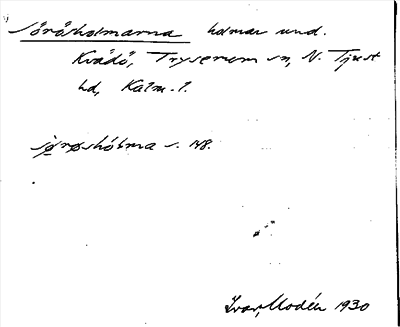 Söråsholmarna holmar und.
Kvädö, Tryserum sn, N. Tjust
hd, Kalm. l.
s. 148.
Ivar Modéer 1930